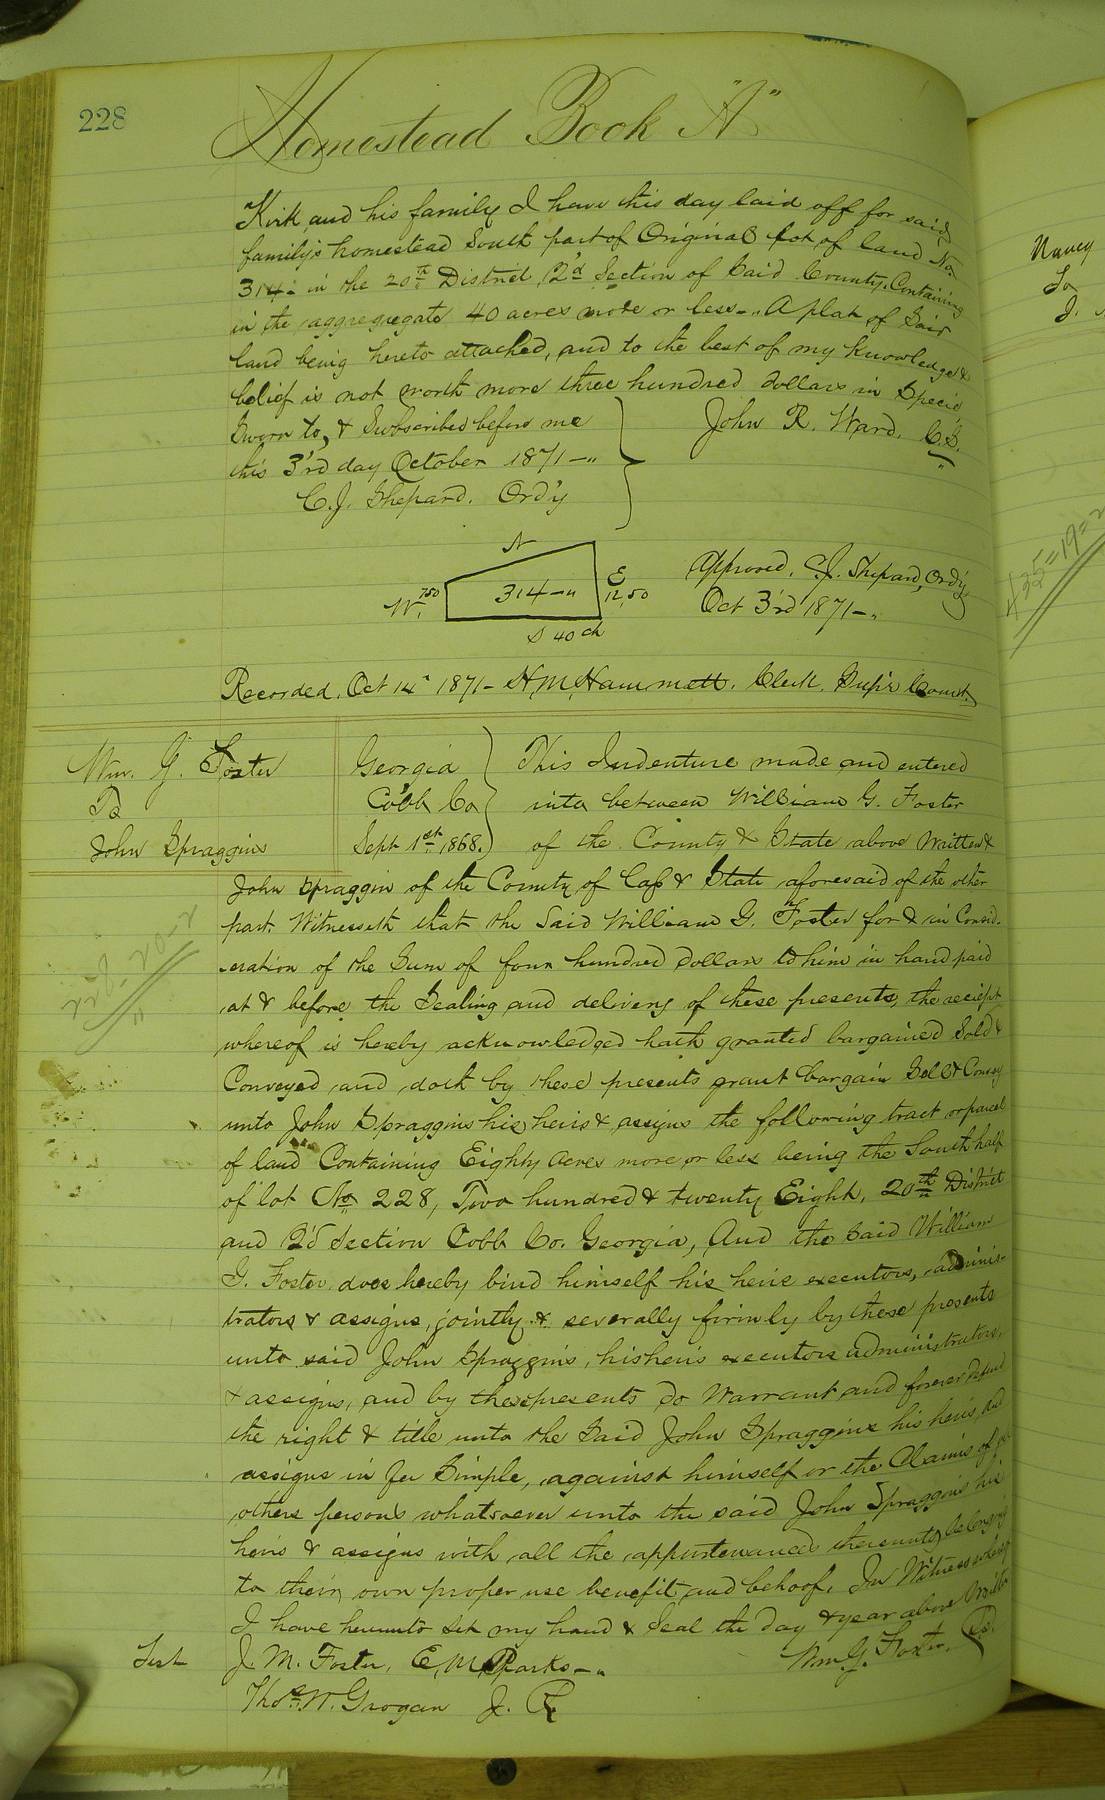 228
Homestead Book "A"
Kirk and his family I have this day laid off for said
family's homestead South part of Original Lot of land No
314 in the 20th District, 2'd Section of Said County, Containing
in the aggregate 40 acres more or less. A plat of Said
land being hereto attached, and to the best of my knowledge &
belief is not worth more three hundred dollars in Specie
Sworn to, & Subscribed before me
John R. Ward. C.S.
this 3'rd day October 1871
C.J. Shepard. Ord'y
N
W. 750
314
E 12,50
S 40 ch
Approved, C.J. Shepard, Ord'y
Oct 3'rd 1871
Recorded, Oct 14" 1871 H.M. Hammett. Clerk. Sup'r Court.
Wm. G. Foster
To
John Spraggins
Georgia
Cobb Co
Sept 1st 1868.
This Indenture made and entered
into between William G. Foster
of the County & State above Written &
John Spraggin of the County of Cass & State aforesaid of the other
part. Witnesseth that the Said William G. Foster for & in Consid-
eration of the Sum of four hundred dollars to him in hand paid
at & before the Sealing and delivery of these presents, the reciept
whereof is hereby acknowledged hath granted bargained Sold &
Conveyed and doth by these presents grant bargain Sell & Convey
unto John Spraggins his heirs & assigns the following tract or parcel
of land Containing Eighty Acres more or less being the South half
of lot No. 228, Two hundred & twenty Eight, 20th District
and 2'd Section Cobb Co. Georgia, And the Said William
G. Foster does hereby bind himself his heirs executors, adminis-
trators & assigns, jointly & severally firmly by these presents
unto said John Spraggins, his heirs executors administrators,
& assigns, and by these presents do Warrant and forever defend
the right & title unto the Said John Spraggins his heirs and
assigns in fee Simple, against himself or the Claims of
others persons whatsoever unto the said John Spraggins his
heirs & assigns with all the appurtenances thereunto belonging
to their own proper use benefit and behoof. In Witness whereof
I have hereunto Set my hand & Seal the day & year above Written
Test J. M. Foster, E. M. Sparks
Wm G. Foster,
Thos. W. Grogan J. P.
Nancy
To
J.